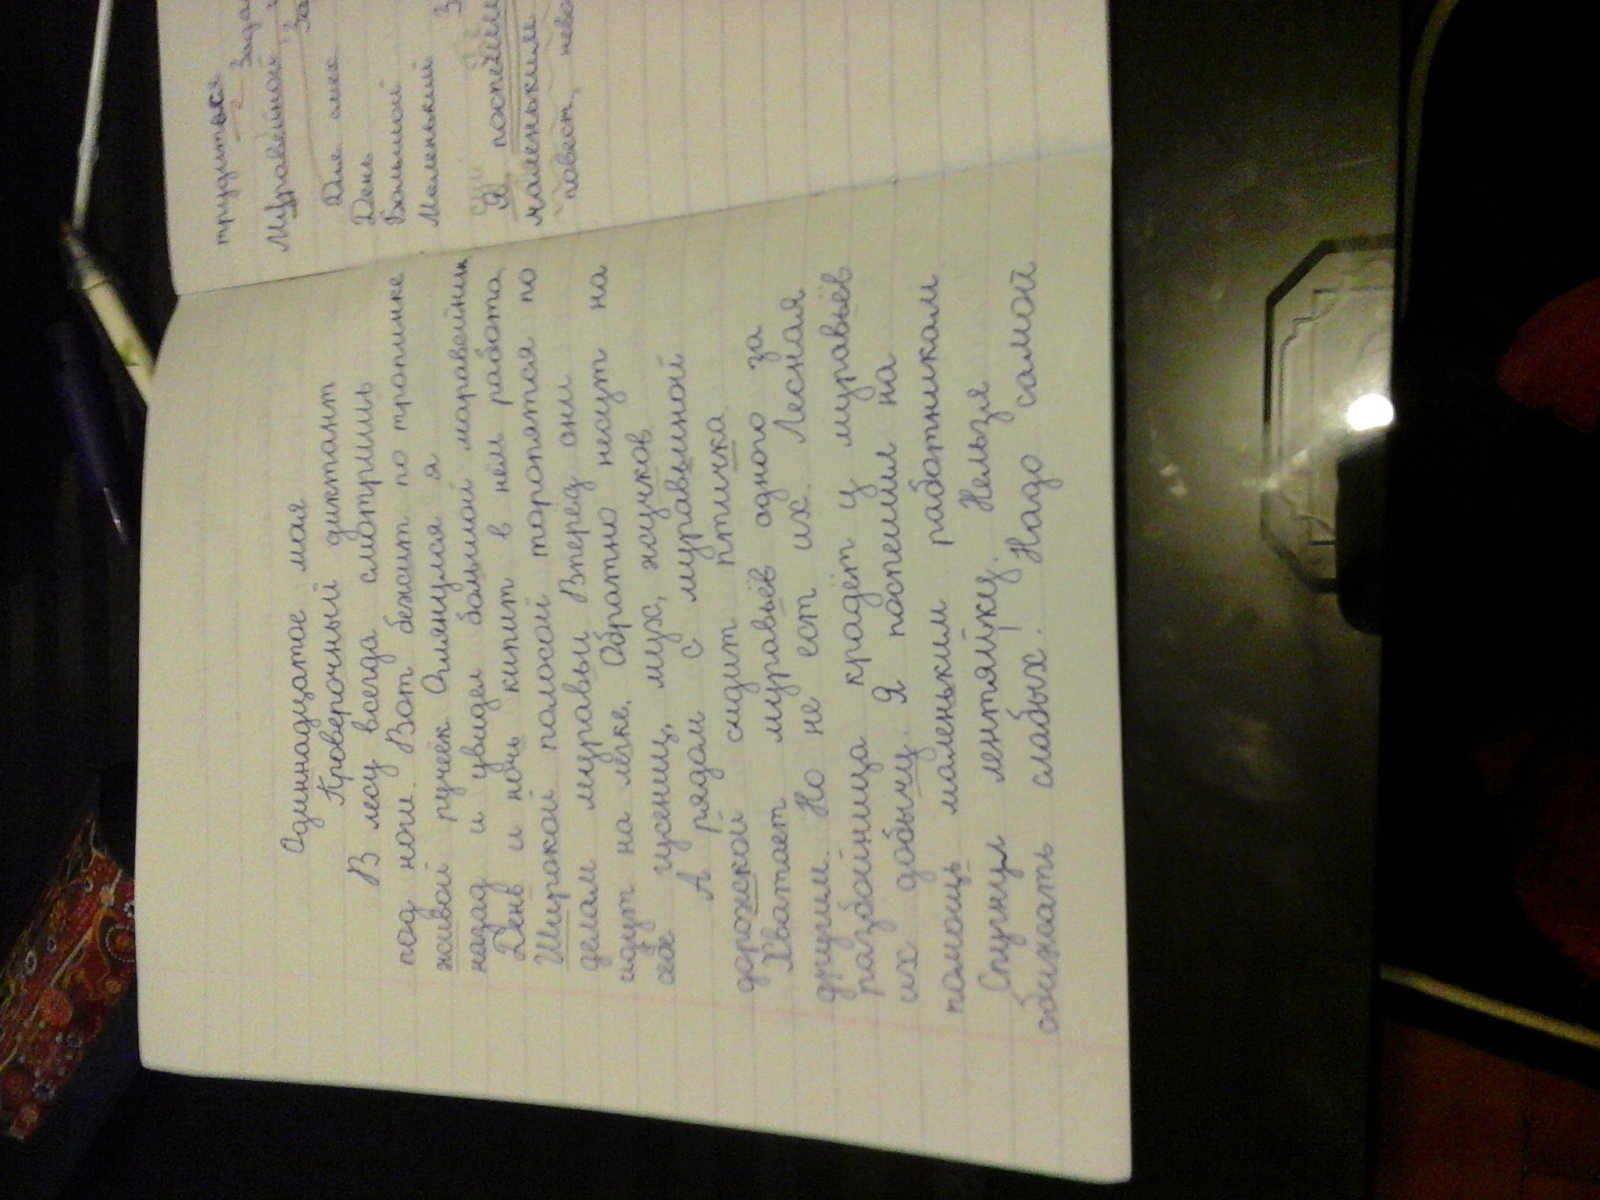 Одиннадцатое мая
Проверочный диктант
В лесу всегда смотришь
под ноги. Вот бежит по тропинке
живой ручеёк. Оглянулся я
назад и увидел большой маравейник
День и ночь кипит в нём работа
Широкой полосой торопятся по
делам муравьи. Вперед они
идут на легке. Обратно несут на
себе гусениц, мух, жучков
А рядом с муравьиной
дорожкой сидит птичка
Хватает муравьёв одного за
другим. Но не ест их. Лесная
разбойница крадёт у муравьёв
их добычу. Я поспешил на
помощь маленьким работникам.
Спугнул лентяйку. Нельзя
обижать слабых! Надо самой
трудиться
Муравейной
Для
День
Большой
Меленький
Я поспешил
маленьким
повест,